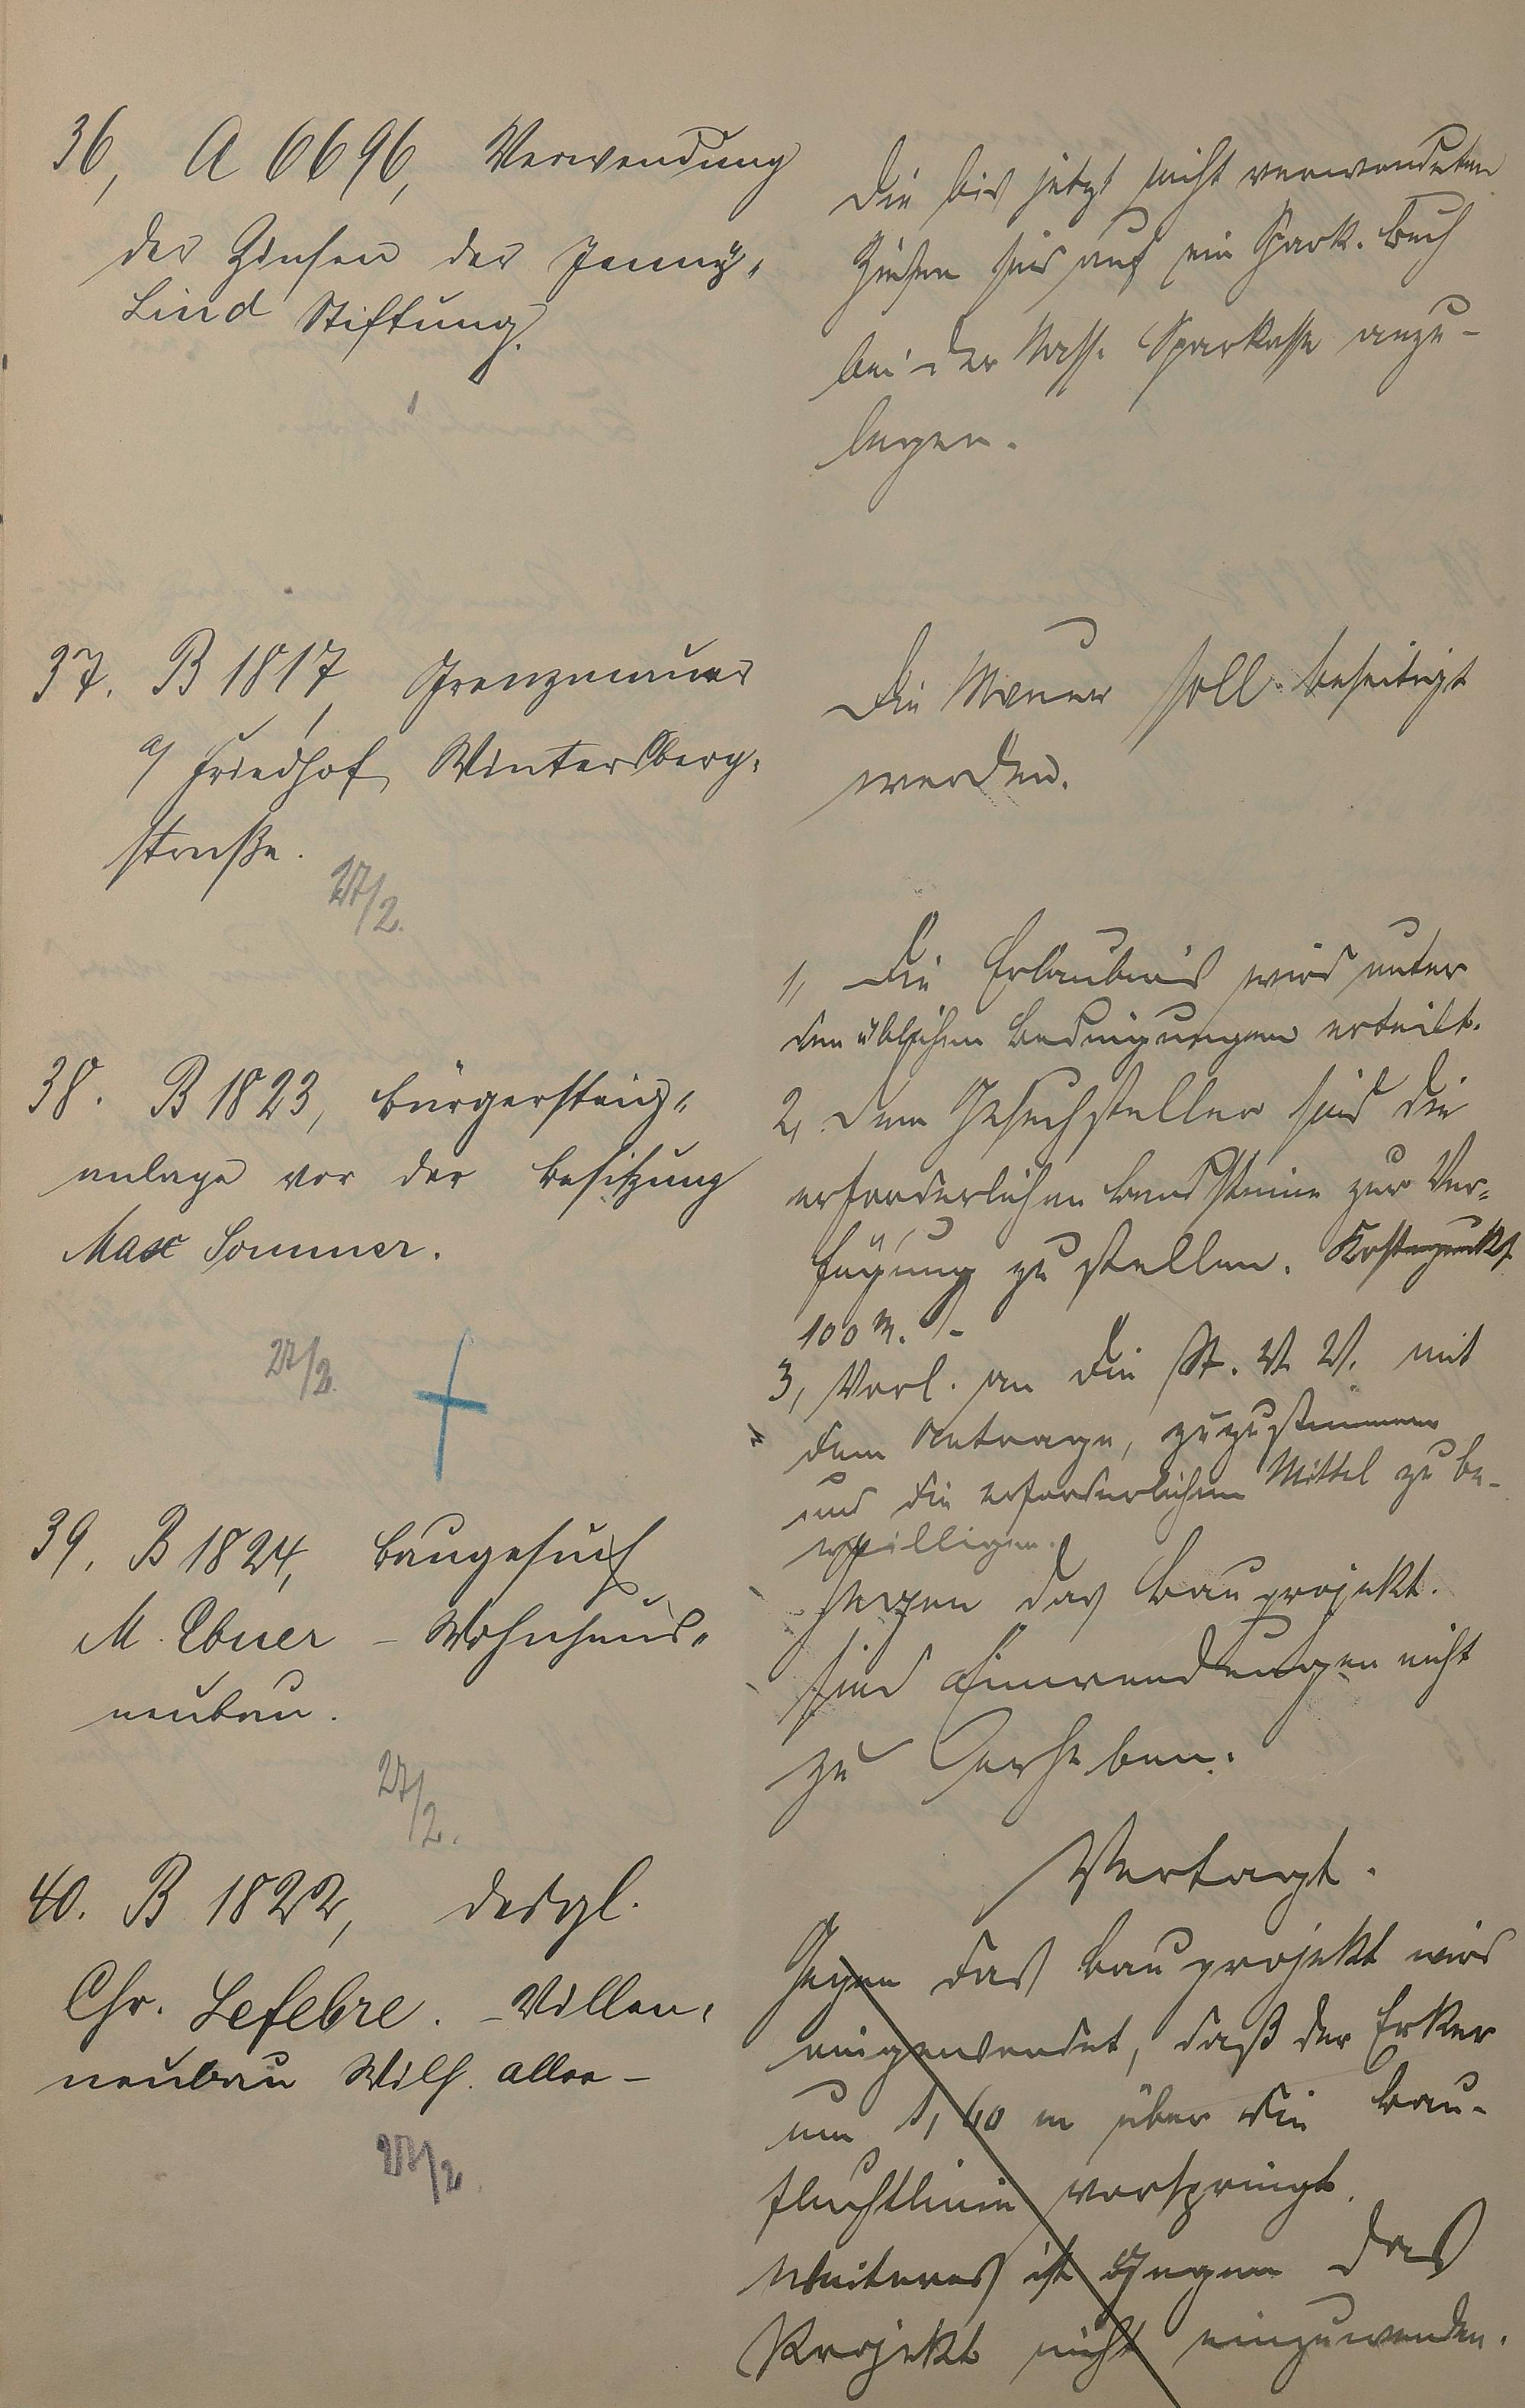 36, A 6696, Verwendung
der Zinsen der Jenny-
Lind Stiftung.
Die bis jetzt nicht verwendeten
Zinsen sind auf ein Spark. Buch
bei der Nass. Sparkasse anzu-
legen.
37. B 1817, Grenzmauer
a/ Friedhof Wintersberg-
straße.
27/2.
Die Mauer soll beseitigt
werden.
38. B 1823, Bürgersteig-
anlage vor der Besitzung
Max Sommer.
27/2.
1, Die Erlaubnis wird unter
den üblichen Bedingungen erteilt.
2, Dem Gesuchsteller sind die
erforderlichen Bandsteine zur Ver-
fügung zu stellen. Kostenpunkt
100 M. -
3, Vorl. an die St. V. V. mit
dem Antrage, zuzustimmen
und die erforderlichen Mittel zu be-
willigen.
39. B 1824, Baugesuch
M. Ebner - Wohnhaus-
neubau.
27/2.
Gegen das Bauprojekt
sind Einwendungen nicht
zu erheben.
40. B 1822, desgl.
Chr. Lefebre. - Villen-
neubau Wilh. allee -
27/2.
Vertagt.
Gegen das Bauprojekt wird
eingewendet, daß der Erker
um 1,60 m über die Bau-
fluchtlinie vorspringt.
Weiteres ist gegen das
Projekt nicht einzuwenden.